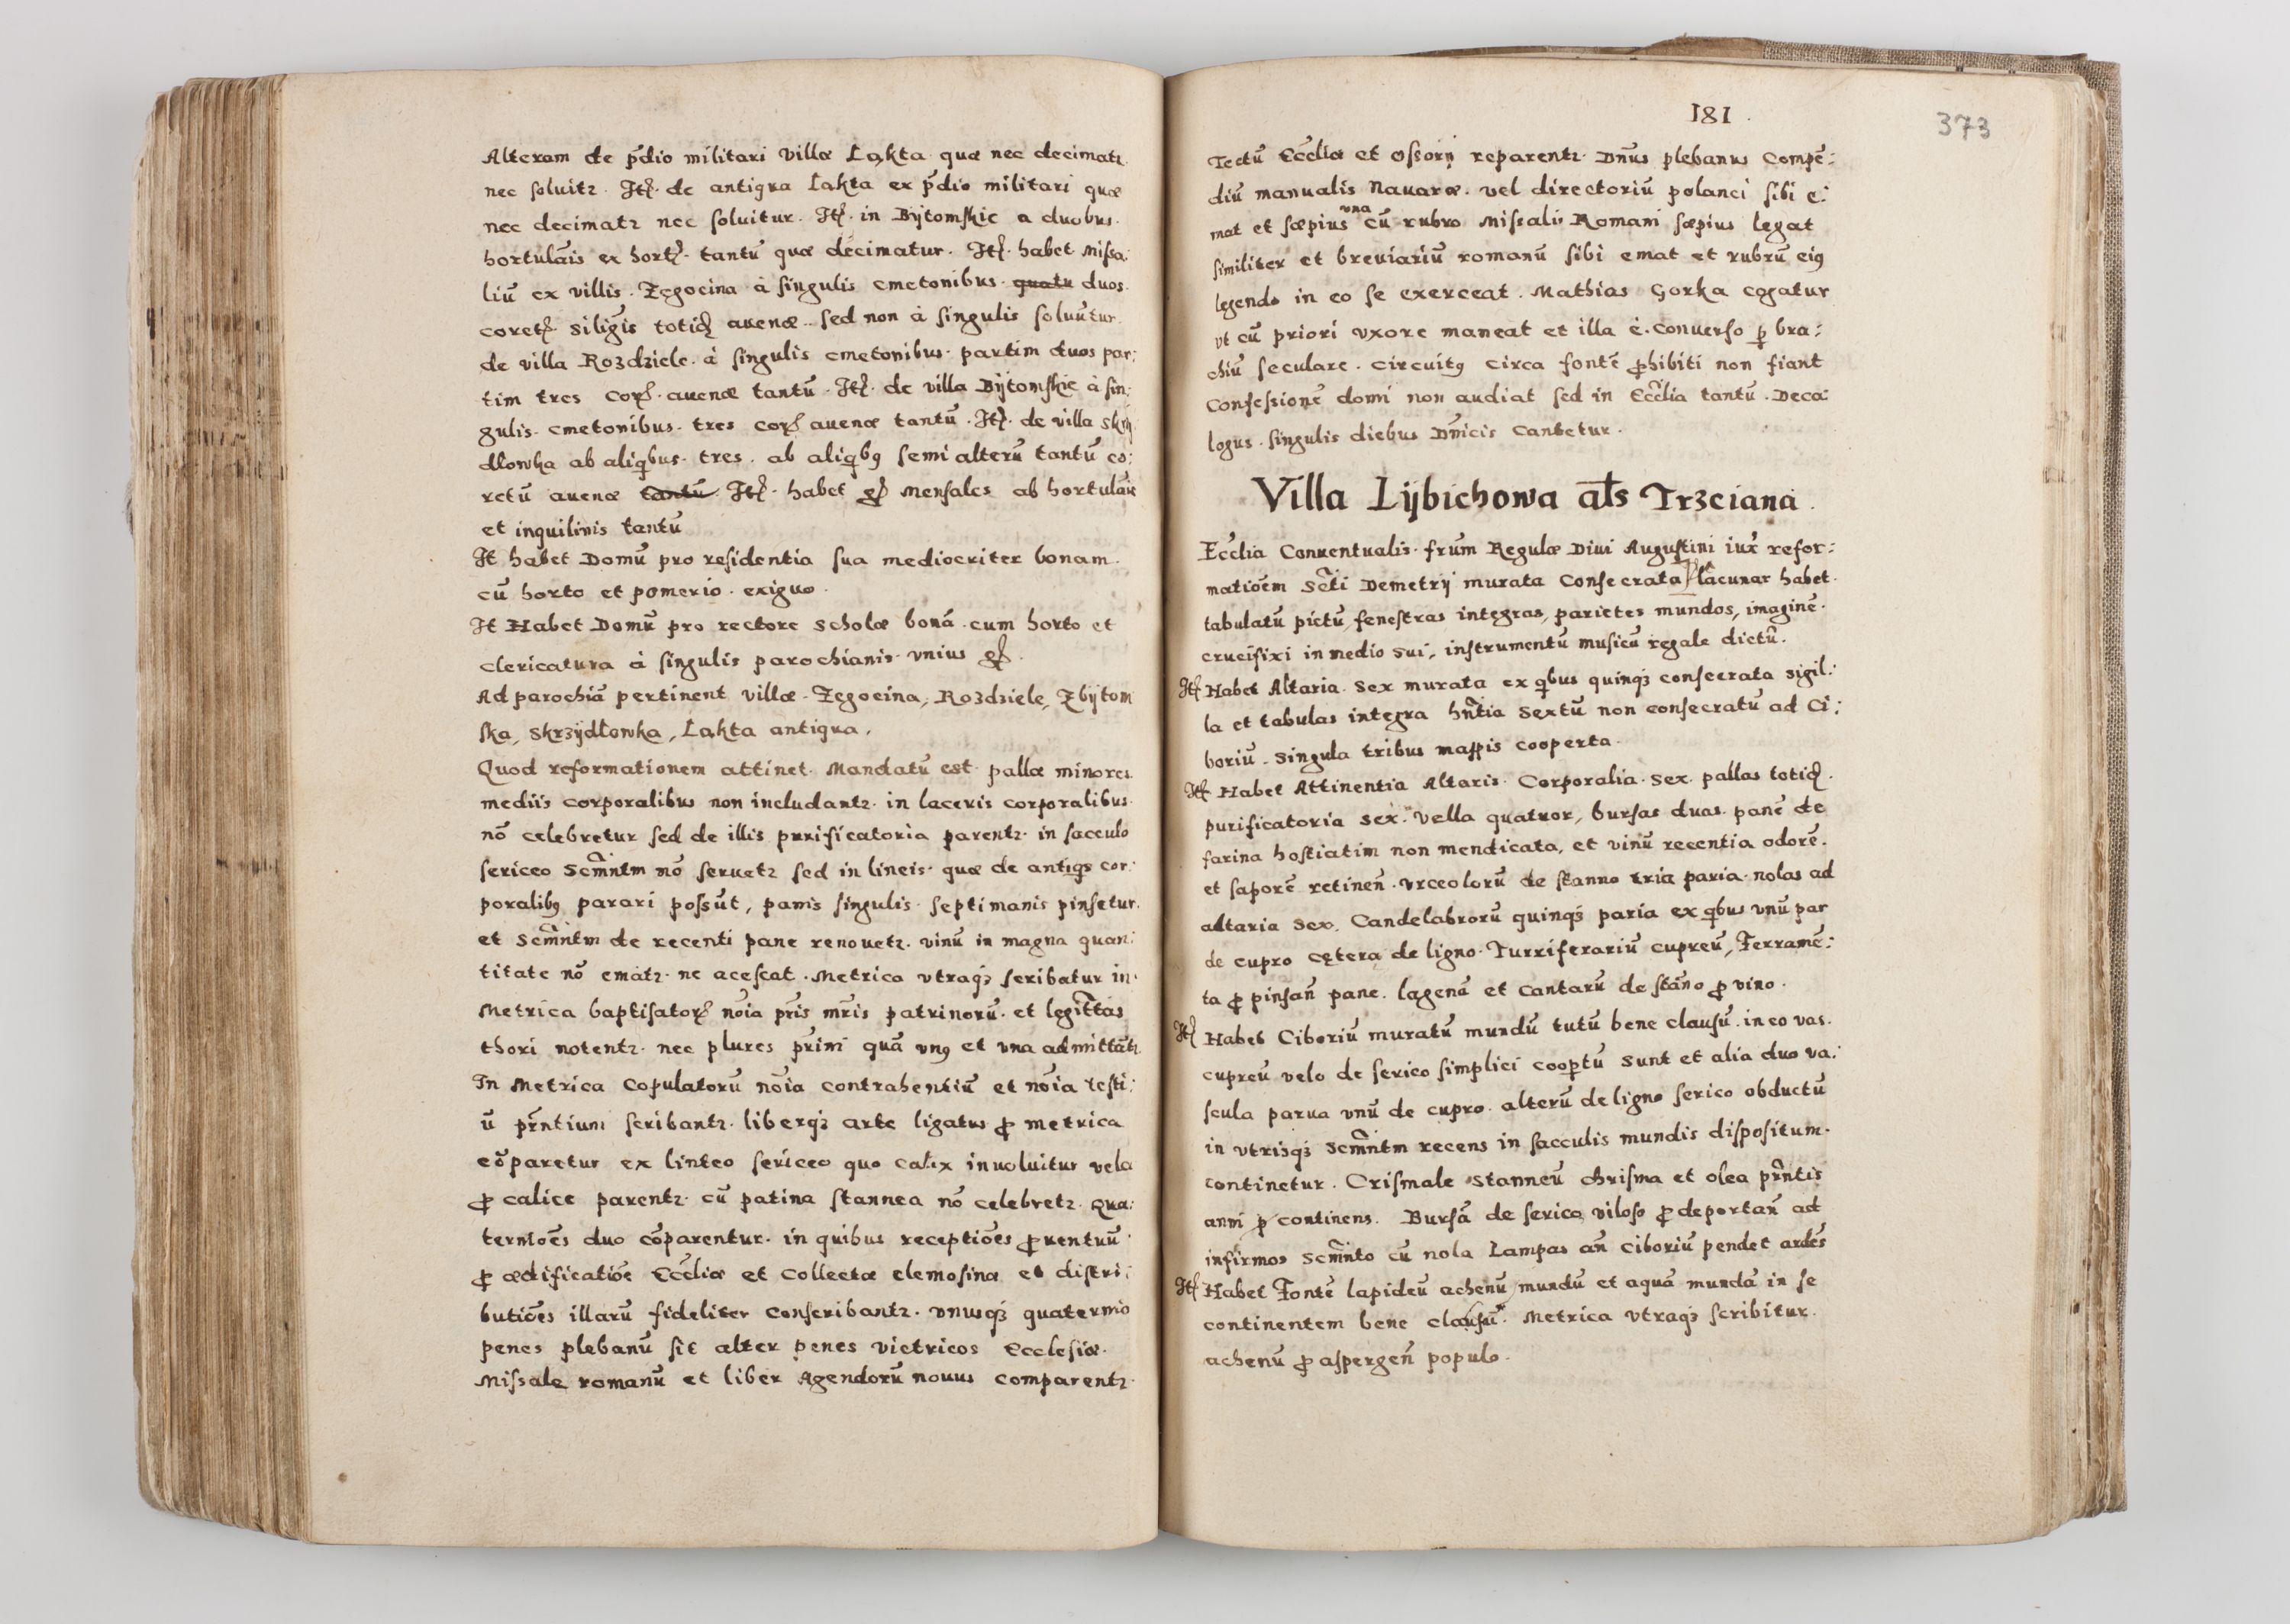 Alteram de p̄dio militari villæ Łąkta quæ nec decimatꝛ
nec soluitꝛ. Itē. de antiqua Łakta ex p̄dio militari quæ
nec decimatꝛ nec soluitur. Itē. in Bÿtomskie a duobus
hortulāis ex hortꝭ. tantū quæ decimatur. Itē. habet missa:
liū ex villis. Zęgocina à singulis cmetonibus. duos
coretꝭ siligīs totiđ auenæ. sed non à singulis soluūtur
de villa Rozdziele. à singulis cmetonibus. partim duos par:
tim tres corꝭ. auenæ tantū. Itē. de villa Bÿtomskie à sin:
gulis cmetonibus. tres corꝭ auenæ tantū. Itē. de villa Skrzÿ
dłowka ab aliqꝫbus. tres. ab aliqꝫbꝰ semi alterū tantū co:
retū auenæ tantū Itē. habet gꝭ Mensales ab hortulāis
et inquilinis tantū
It habet Domū pro residentia sua mediocriter bonam.
cū horto et pomerio. exiguo.
It Habet Domū pro rectore scholæ bonā cum horto et
clericatura à singulis parochianis vnius gꝭ.
Ad parochiā pertinent villæ. Zęgocina, Rozdziele, Zbÿtom
ska, Skrzÿdłowka, Łąkta antiqua,
Quod reformationem attinet. Mandatū est. pallæ minores
mediis corporalibus non includantꝛ. in laceris corporalibus
nō celebretur sed de illis purificatoria parentꝛ. in sacculo
sericeo Scm̄ntm nō seruetꝛ sed in lineis quæ de antiqs cor:
poralibꝰ parari possūt, panis singulis septimanis pinsetur.
et Scm̄ntm de recenti pane renouetꝛ. vinū in magna quan:
titate nō ematꝛ. ne acescat. Metrica vtraqꝫ scribatur in
Metrica baptisatorꝭ nōia pr̄is mr̄is patrinorū et legitt̄as
thori notentꝛ. nec plures p̄rini quā vnꝰ et vna admittātꝛ
In Metrica Copulatorū nōia contrahentiū et nōia testi:
ū pr̄ntium scribantꝛ. liberqꝫ arte ligatus ꝓ metrica
cōparetur ex linteo sericeo quo calix inuoluitur vela
ꝓ calice parentꝛ. cū patina stannea nō celebretꝛ. Qua:
terniōes duo cōparentur. in quibus receptiōes ꝓuentuū
ꝓ ædificatiōe Eccliæ et Collectæ elemosinæ et distri:
butiōes illarū fideliter conscribantꝛ. vnusqꝫ quaternio
penes plebanū sit alter penes victricos Ecclesiæ.
Missale romanū et liber Agendorū nouus comparentꝛ
181.
373
Tectū Eccliæ et ossorij reparentꝛ. Dn̄us plebanus Compē:
diū manualis Nauaræ. vel directoriū polanci sibi e:
mat et sæpius vna cū rubro Missalis Romani sæpius legat
similiter et breuiariū romanū sibi emat et rubrū eiꝰ
legendo in eo se exerceat. Mathias Gorka cogatur
vt cū priori vxore maneat et illa è. conuerso ꝑ bra:
chiū seculare. circuitꝰ circa fontē ꝓhibiti non fiant
Confessionē domi non audiat sed in Ecclia tantū. Deca:
logus. singulis diebus Dn̄icis cantetur.
Villa Lÿbichowa al̄s Trzciana.
Ecclia Conuentualis. frūm Regulæ Diui Augustini iux̄ refor:
matiōem Scti Demetrij murata Consecrata lacunar habet
tabulatū pictū, fenestras integras, parietes mundos, imaginē
crucifixi in medio sui, instrumentū musicū regale dictū.
Itē Habet Altaria. Sex murata ex qꝫbus quinqꝫ consecrata sigil:
la et tabulas integra hn̄tia Sextū non consecratū ad Ci:
boriū. singula tribus mappis cooperta.
Itē Habet Attinentia Altaris. Corporalia. Sex. pallas totiđ.
purificatoria sex. Vella quatuor, bursas duas. panē de
farina hostiatim non mendicata, et vinū recentia odorē.
et saporē retineñ. vrceolorū de stanno tria paria. nolas ad
altaria sex. Candelabrorū quinqꝫ paria ex qꝫbus vnū par
de cupro cętera de ligno. Turriferariū cupreū, Ferramē:
ta ꝓ pinsañ pane. lagenā et Cantarū de stāno ꝓ vino.
Itē Habet Ciboriū muratū mundū tutū bene clausū. in eo vas.
cupreū velo de serico simplici coop̄tū sunt et alia duo va:
scula parua vnū de cupro. alterū de ligno serico obductū
in vtrisqꝫ Scm̄ntm recens in sacculis mundis dispositum.
continetur. Crismale stanneū chrisma et olea pr̄ntis
anni ꝑ continens. Bursā de serico viloso ꝓ deportañ ad
infirmos Scm̄nto cū nola Lampas añ Ciboriū pendet ardēs
Itē Habet Fontē lapideū achenū mundū et aquā mundā in se
continentem bene clausū. Metrica vtraqꝫ scribitur.
achenū ꝓ aspergeñ populo.